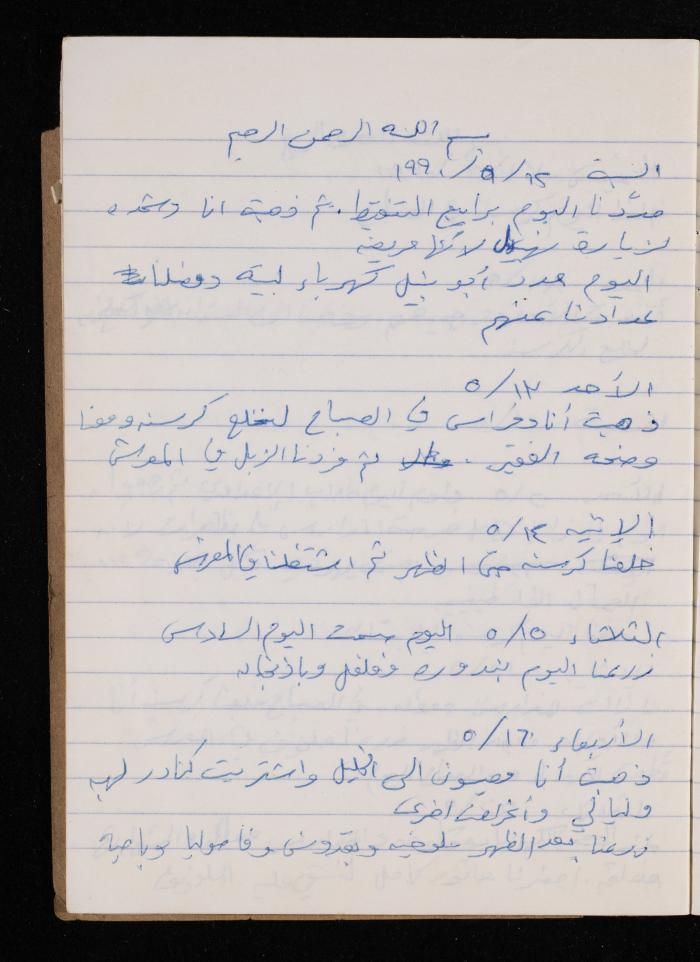 بسم الله الرحمن الرحيم
السبت ١٢/٥/١٩٩٠
مددنا اليوم برابيج التنقيط. ثم ذهبت انا و
لزيارة لأنها مريضه
اليوم مدد أبو نبيل كهرباء لبيته وفصلنا
عدادنا عنهم
الأحد ١٣/٥
ذهبت أنا وفراس في الصباح لنخلع كرسنه ومعنا
وضحه الفقير. ثم فردنا الزبل في المعرش
الإثنين ١٤/٥
خلعنا كرسنه حتى الظهر ثم اشتغلنا في المعرش
الثلاثاء ١٥/٥ اليوم صمت اليوم السادس
زرعنا اليوم بندوره وفلفل وباذنجان
الأربعاء ١٦/٥
ذهبت أنا وميسون الى الخليل واشتريت كنادر لهبه
ولباني وأغراض اخرى
زرعنا بعد الظهر ملوخيه وبقدونس وفاصوليا لوبا